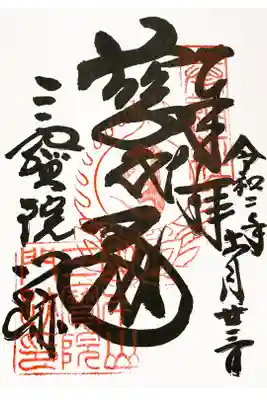 奉拝
令和二年十一月廿三日
慈氏尊
三寳院
門跡